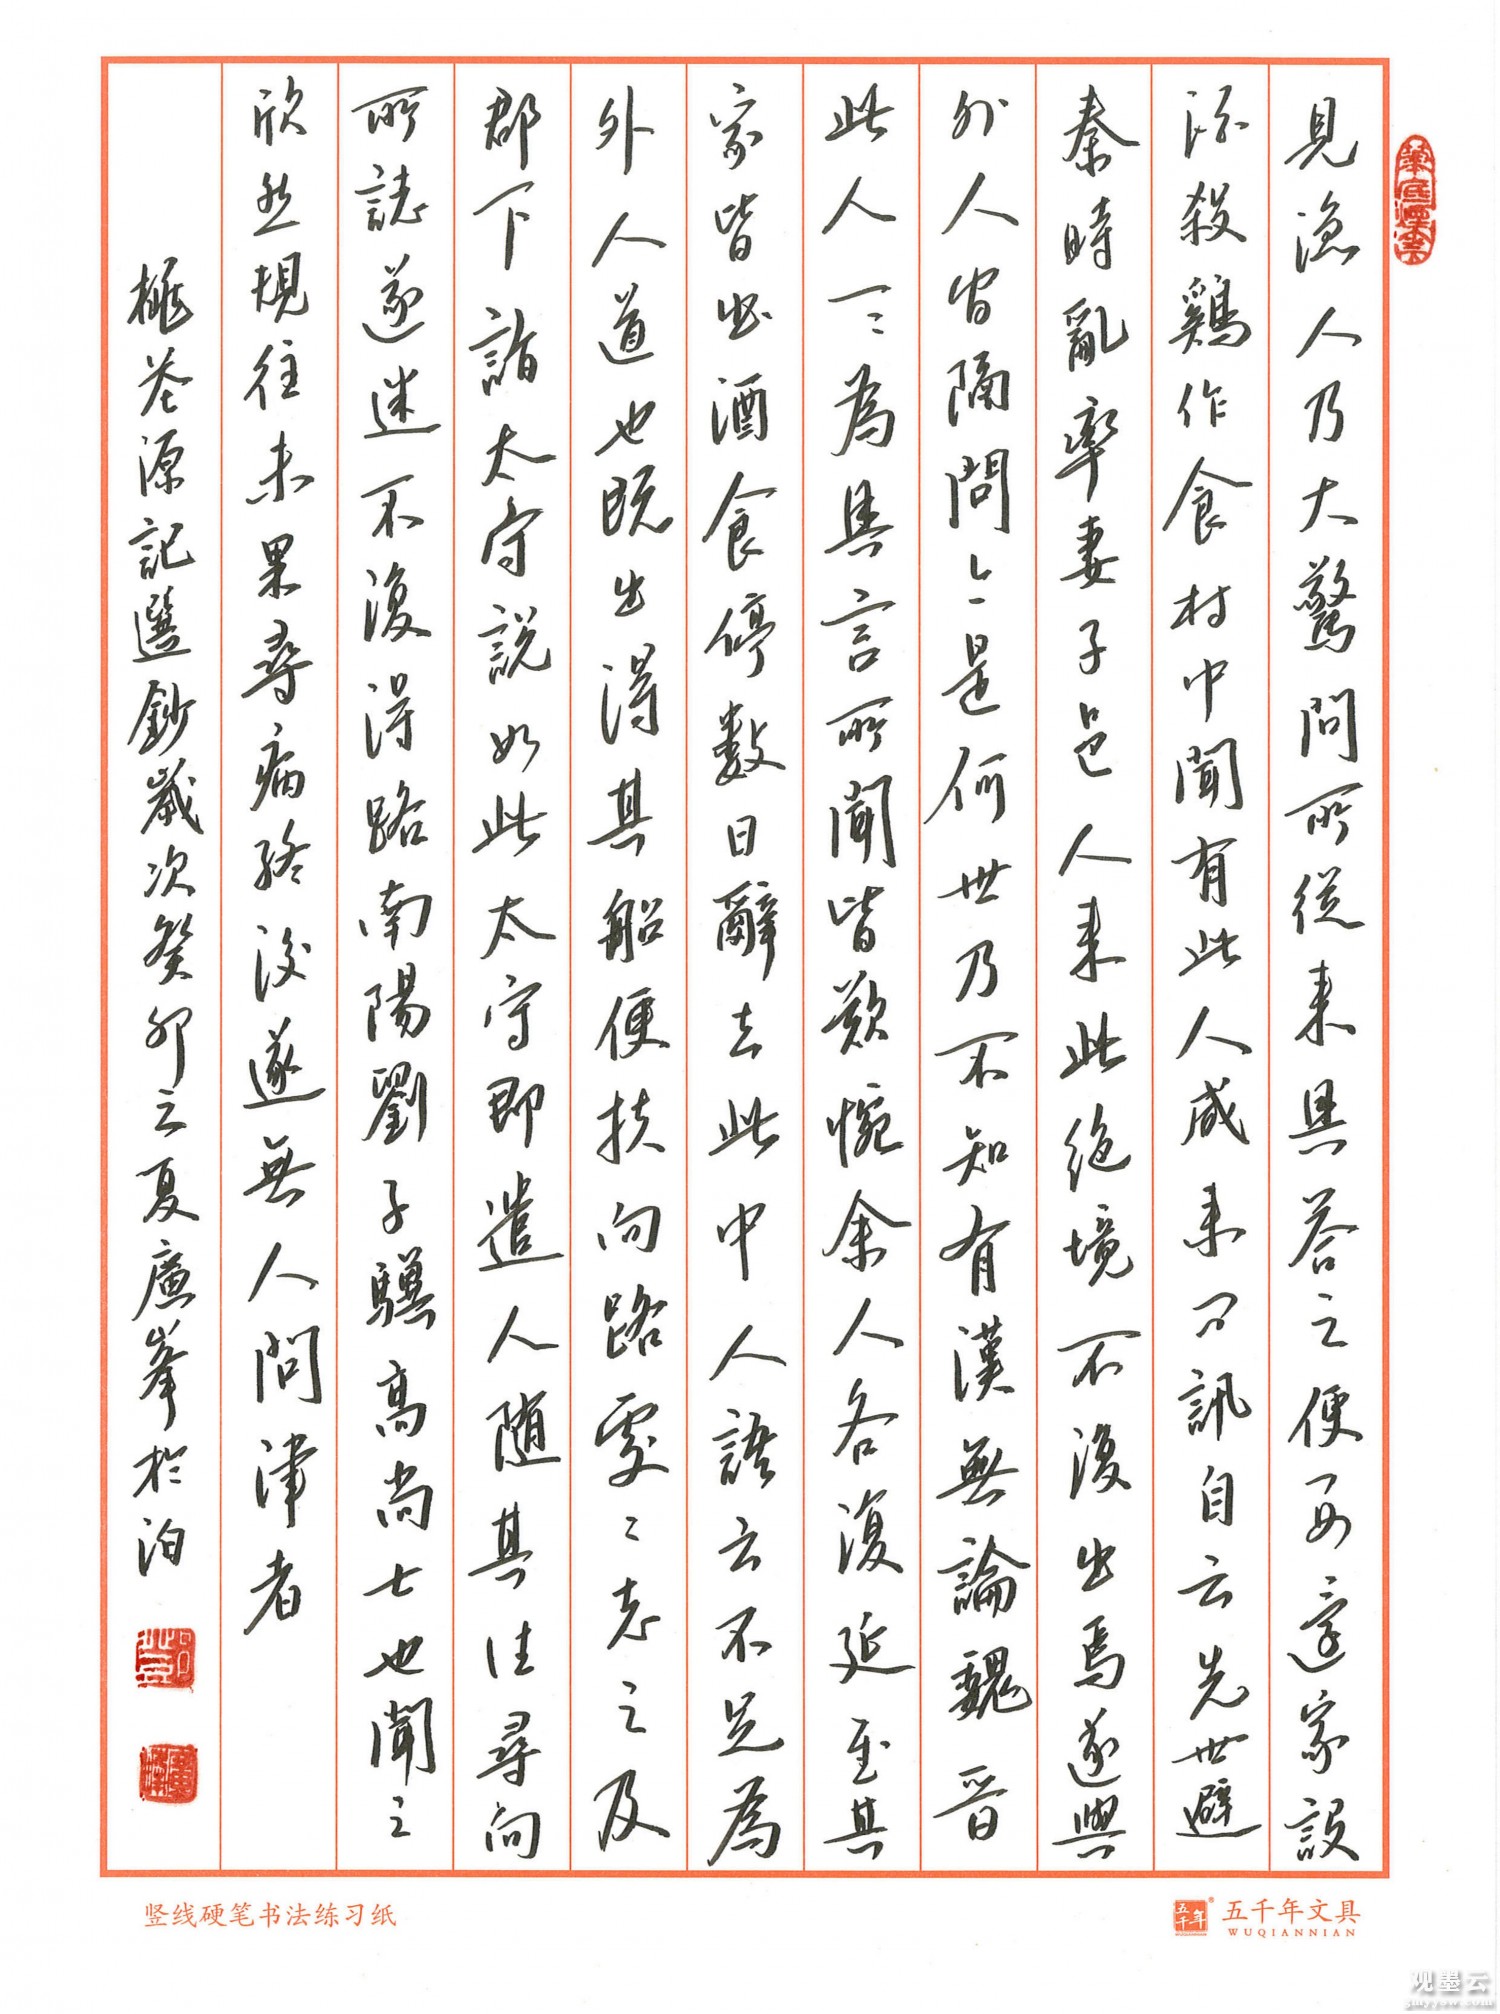 見漁人乃大驚問所從来具答之便要還家設
酒殺鷄作食村中聞有此人咸来问訊自云先世避
秦時亂率妻子邑人来此絶境不復出焉遂與
外人间隔問今是何世乃不知有漢無論魏晉
此人一一為具言所聞皆歎惋余人各復延至其
家皆出酒食停数日辭去此中人語云不足為
外人道也既出得其船便扶向路處處志之及
郡下詣太守説如此太守即遣人随其往尋向
所誌遂迷不復得路南陽劉子驥高尚士也聞之
欣然規往未果尋病終後遂無人問津者
桃花源記選鈔歲次癸卯之夏廣峯於泊
竖线硬笔书法练习纸
五千年文具
WUQIANNIAN
观墨云